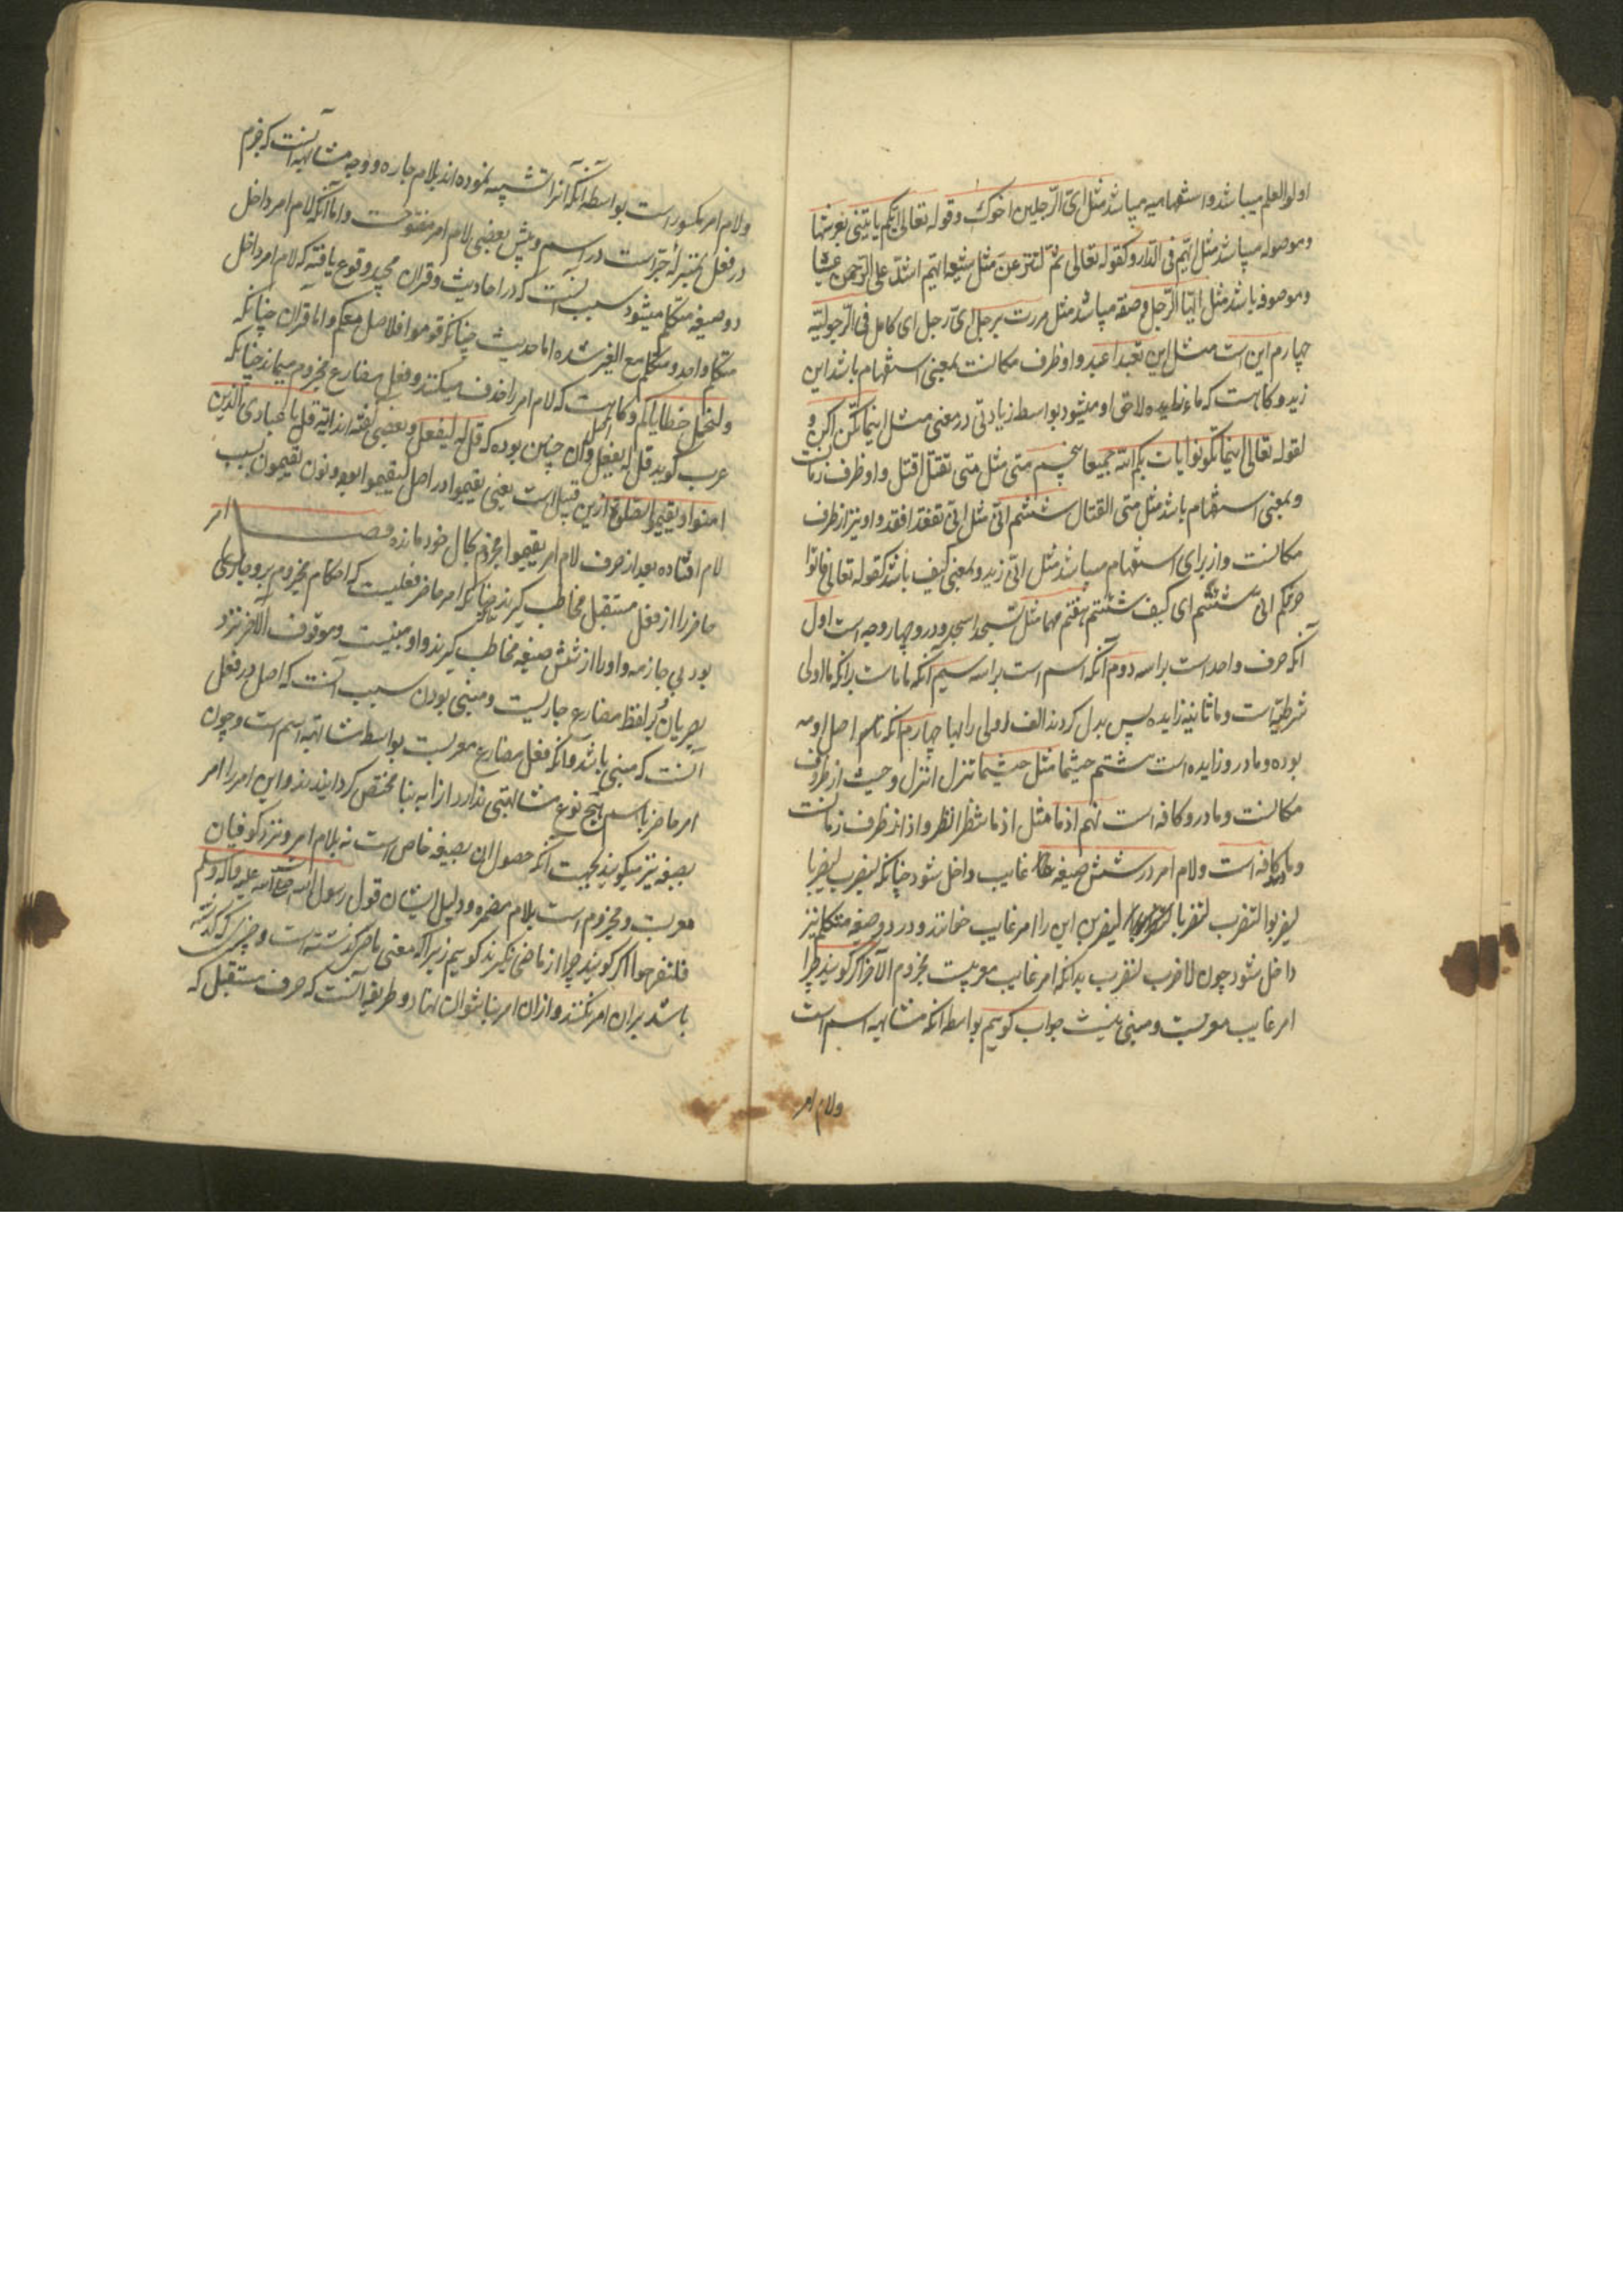 اولوالعلم میباشد و استفهامیه میباشد مثل ای الرجلین اخوک و قوله تعالی ایکم یاتینی بعرشها
و موصوله میباشد مثل ایهم فی الدار و کقوله تعالی ثم لننزعن من کل شیعة ایهم اشد علی الرحمن عتیا
و موصوفه باشد مثل ایها الرجل و صفة میباشد مثل مررت برجل ای رجل ای کامل فی الرجولیة
چهارم این است مثل این تعبد اعبد و او ظرف مکانست بمعنی استفهام باشد این
زید و کاهست که ماء زایده لاحق او میشود بواسطه زیادتی در معنی مثل اینما تکن اکن و
لقوله تعالی اینما تکونوا یات بکم الله جمیعا پنجم متی مثل متی تقتل اقتل و او ظرف زمانست
و بمعنی استفهام باشد مثل متی القتال ششم انی مثل انی تقعد اقعد و او نیز از ظرف
مکانست و از برای استفهام میباشد مثل انی زید و بمعنی کیف باشد کقوله تعالی فاتوا
حرثکم انی شئتم ای کیف شئتم هفتم مهما مثل تسجد اسجد و درو چهار وجه است اول
آنکه حرف واحد است براسه دوم آنکه اسم است براسه سیم آنکه ماماست بدانکه ما اولی
شرطیه است و ما ثانیه زایده پس بدل کردند الف اولی را بها چهارم آنکه اصل او مه
بوده و ما درو زایده است هشتم حیثما مثل حیثما تنزل انزل و حیث از ظروف
مکانست و ما درو کافه است نهم اذما مثل اذما تنظر انظر و اذ از ظرف زمانست
و ما کافه است و لام امر در شش صیغه غایب داخل شود چنانکه لیضرب لیضربا
لیضربوا لتضرب لتضربا لیضربن این را امر غایب خوانند و در دو صیغه متکلم نیز
داخل شود چون لاضرب لنضرب بدانکه امر غایب معربست مجزوم الآخر اگر کویند چرا
امر غایب معربست و مبنی نیست جواب کوییم بواسطه آنکه مشابهه اسم است
ولام امر
ولام امر مکسور است بواسطه آنکه آنرا تشبیه نموده اند بلام جاره و وجه مشابهه آنست که جزم
در فعل بمنزله جر است در اسم و پیش بعضی لام امر مفتوحست و اما آنکه لام امر داخل
دو صیغه متکلم میشود سبب آنست که در احادیث و قران مجید وقوع یافته که لام امر داخل
متکلم واحد و متکلم مع الغیر شده اما حدیث چنانکه قوموا فلاصل معکم و اما قران چنانکه
ولنحمل خطایاکم و کاهست که لام امر را حذف میکنند و فعل مضارع مجزوم میماند چنانکه
عرب کوید قل له یفعل و اصل آن چنین بوده که قل له لیفعل و بعضی کفته اند آیة قل یا عبادی الذین
امنوا و یقیموا الصلوة ازین قبیل است یعنی یقیموا در اصل لیقیموا بوده و نون یقیمون بسبب
لام افتاده بعد از حرف لام امر یقیموا مجزوم بحال خود مانده فصل امر
حاضر را از فعل مستقبل مخاطب کیرند چنانکه امر حاضر فعلیست که احکام مجزوم برو جاری
بود بی جازمه و او را از شش صیغه مخاطب کیرند و او مبنیست و موقوف الآخر نزد
بصریان و بر لفظ مضارع جاریست و مبنی بودن سبب آنست که اصل در فعل
آنست که مبنی باشد و آنکه فعل مضارع معربست بواسطه مشابهة اسم است و چون
امر حاضر باسم هیچ نوع مشابهتی ندارد از آن به بنا مختص کردانیدند و این امر را امر
بصیغه نیز میکویند بجهت آنکه حصول آن بصیغه خاص است نه بلام امر و نزد کوفیان
معربست و مجزوم است بلام مضمره و دلیل ایشان قول رسول الله صلی الله علیه و آله و سلم
فلتفرحوا اکر کویند چرا از ماضی نکیرند کوییم زیرا که معنی ماضی کذشته است و چیزی که کذشته
باشد بران امر نکنند و ازان امر بنا نتوان نهاد و طریقه آنست که حرف مستقبل که